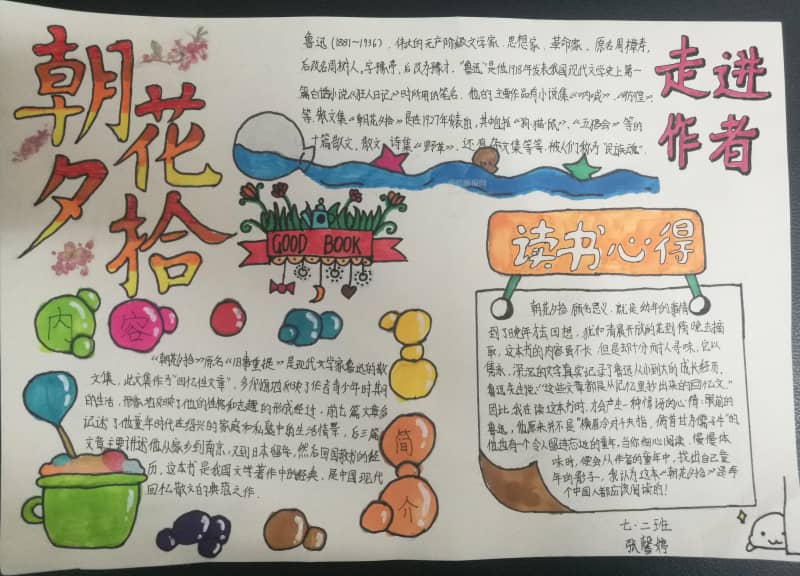 朝花夕拾
走进
作者
鲁迅(1881~1936),伟大的无产阶级文学家、思想家、革命家、原名周樟寿,
后改名周树人。字豫亭,后改为豫才,"鲁迅"是他1918年发表我国现代文学史上第一
篇白话小说《狂人日记》时所用的笔名,他的主要作品有小说集《呐喊》、《彷徨》
等,散文集《朝花夕拾》是在1927年发表的,其中包括《狗·猫·鼠》、《五猖会》等的
十篇散文。散文、诗集《野草》,还有杂文集等等,被人们称为"民族魂"。
GOOD BOOK
读书心得
朝花夕拾 顾名思义,就是幼年的事情
到了晚年去回想,犹如清晨开放的花到傍晚去摘
取,这本书的内容虽不长,但是却十分耐人寻味,它以
隽永、深沉的文字真实记录了鲁迅从小到大的成长经历,
鲁迅先生说:"这些文章都是从记忆里抄出来的回忆文。"
因此,我在读这本书时,才会产生一种特殊的心情:眼前的
鲁迅,他原来并不是"横眉冷对千夫指,俯首甘为孺子牛"的
他也有一个令人留连忘返的童年,当你细心阅读、慢慢体
味时,便会从作者的童年中,找出自己童
年的影子,我认为这本《朝花夕拾》是每
个中国人都应该阅读的!
内容
简介
《朝花夕拾》原名《旧事重提》是现代文学家鲁迅的散
文集,此文集作为"回忆性文章",多侧面地反映了作者青少年时其间
的生活,形象地反映了他的性格和志趣的形成经过,前七篇文章会
记述了他童年时代在绍兴的家庭和私塾中的生活情景,后三篇
文章主要讲述他从家乡到南京,又到日本留学,然后回国教书的经
历,这本书是我国文学著作中的经典,是中国现代
回忆散文的典范之作.
七·二班
张馨婷